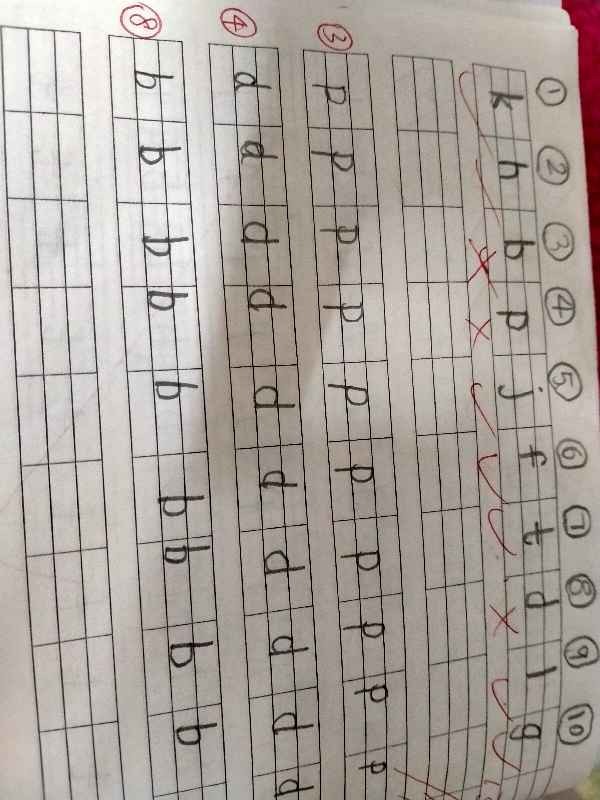 ① ② ③ ④ ⑤ ⑥ ⑦ ⑧ ⑨ ⑩
k h b p j f t d l g
③ p p p p p p p p p p
④ d d d d d d d d d d
⑧ b b b b b b b b b